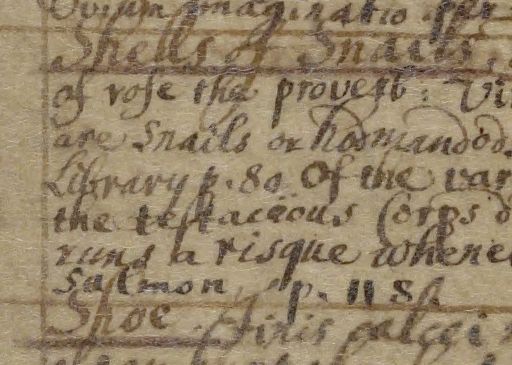 Ovium imaginatio per
Shells of Snails,
of rose the proverb: Vi
are Snails or hodmandod
Library p. 80 Of the var
the testaceous Corps d
runs a risque whene
Salmon, p. 118
Shoe. Finis calcei